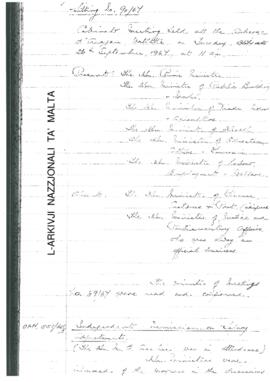 Sitting No. 90/67
Cabinet Meeting held at the Auberge
d'Aragon Valletta on Tuesday,
26th September, 1967, at 11 a.m.
Present: The Hon. Prime Minister
The Hon. Minister of Public Building
& Works
The Hon. Minister of Trade, Industry
& Agriculture
The Hon. Minister of Health
The Hon. Minister of Education
Culture & Tourism
The Hon. Minister of Labour,
Employment & Welfare
The Hon. Minister of Finance,
Customs & Port
The Hon. Minister of Justice and
Parliamentary Affairs
who was away on
official business
The minutes of Meeting
No. 89/67 were read and confirmed.
Independent Commission on
(The Hon. was in attendance)
Ministers were
informed of the in the discussions
L-ARKIVJI NAZZJONALI TA' MALTA